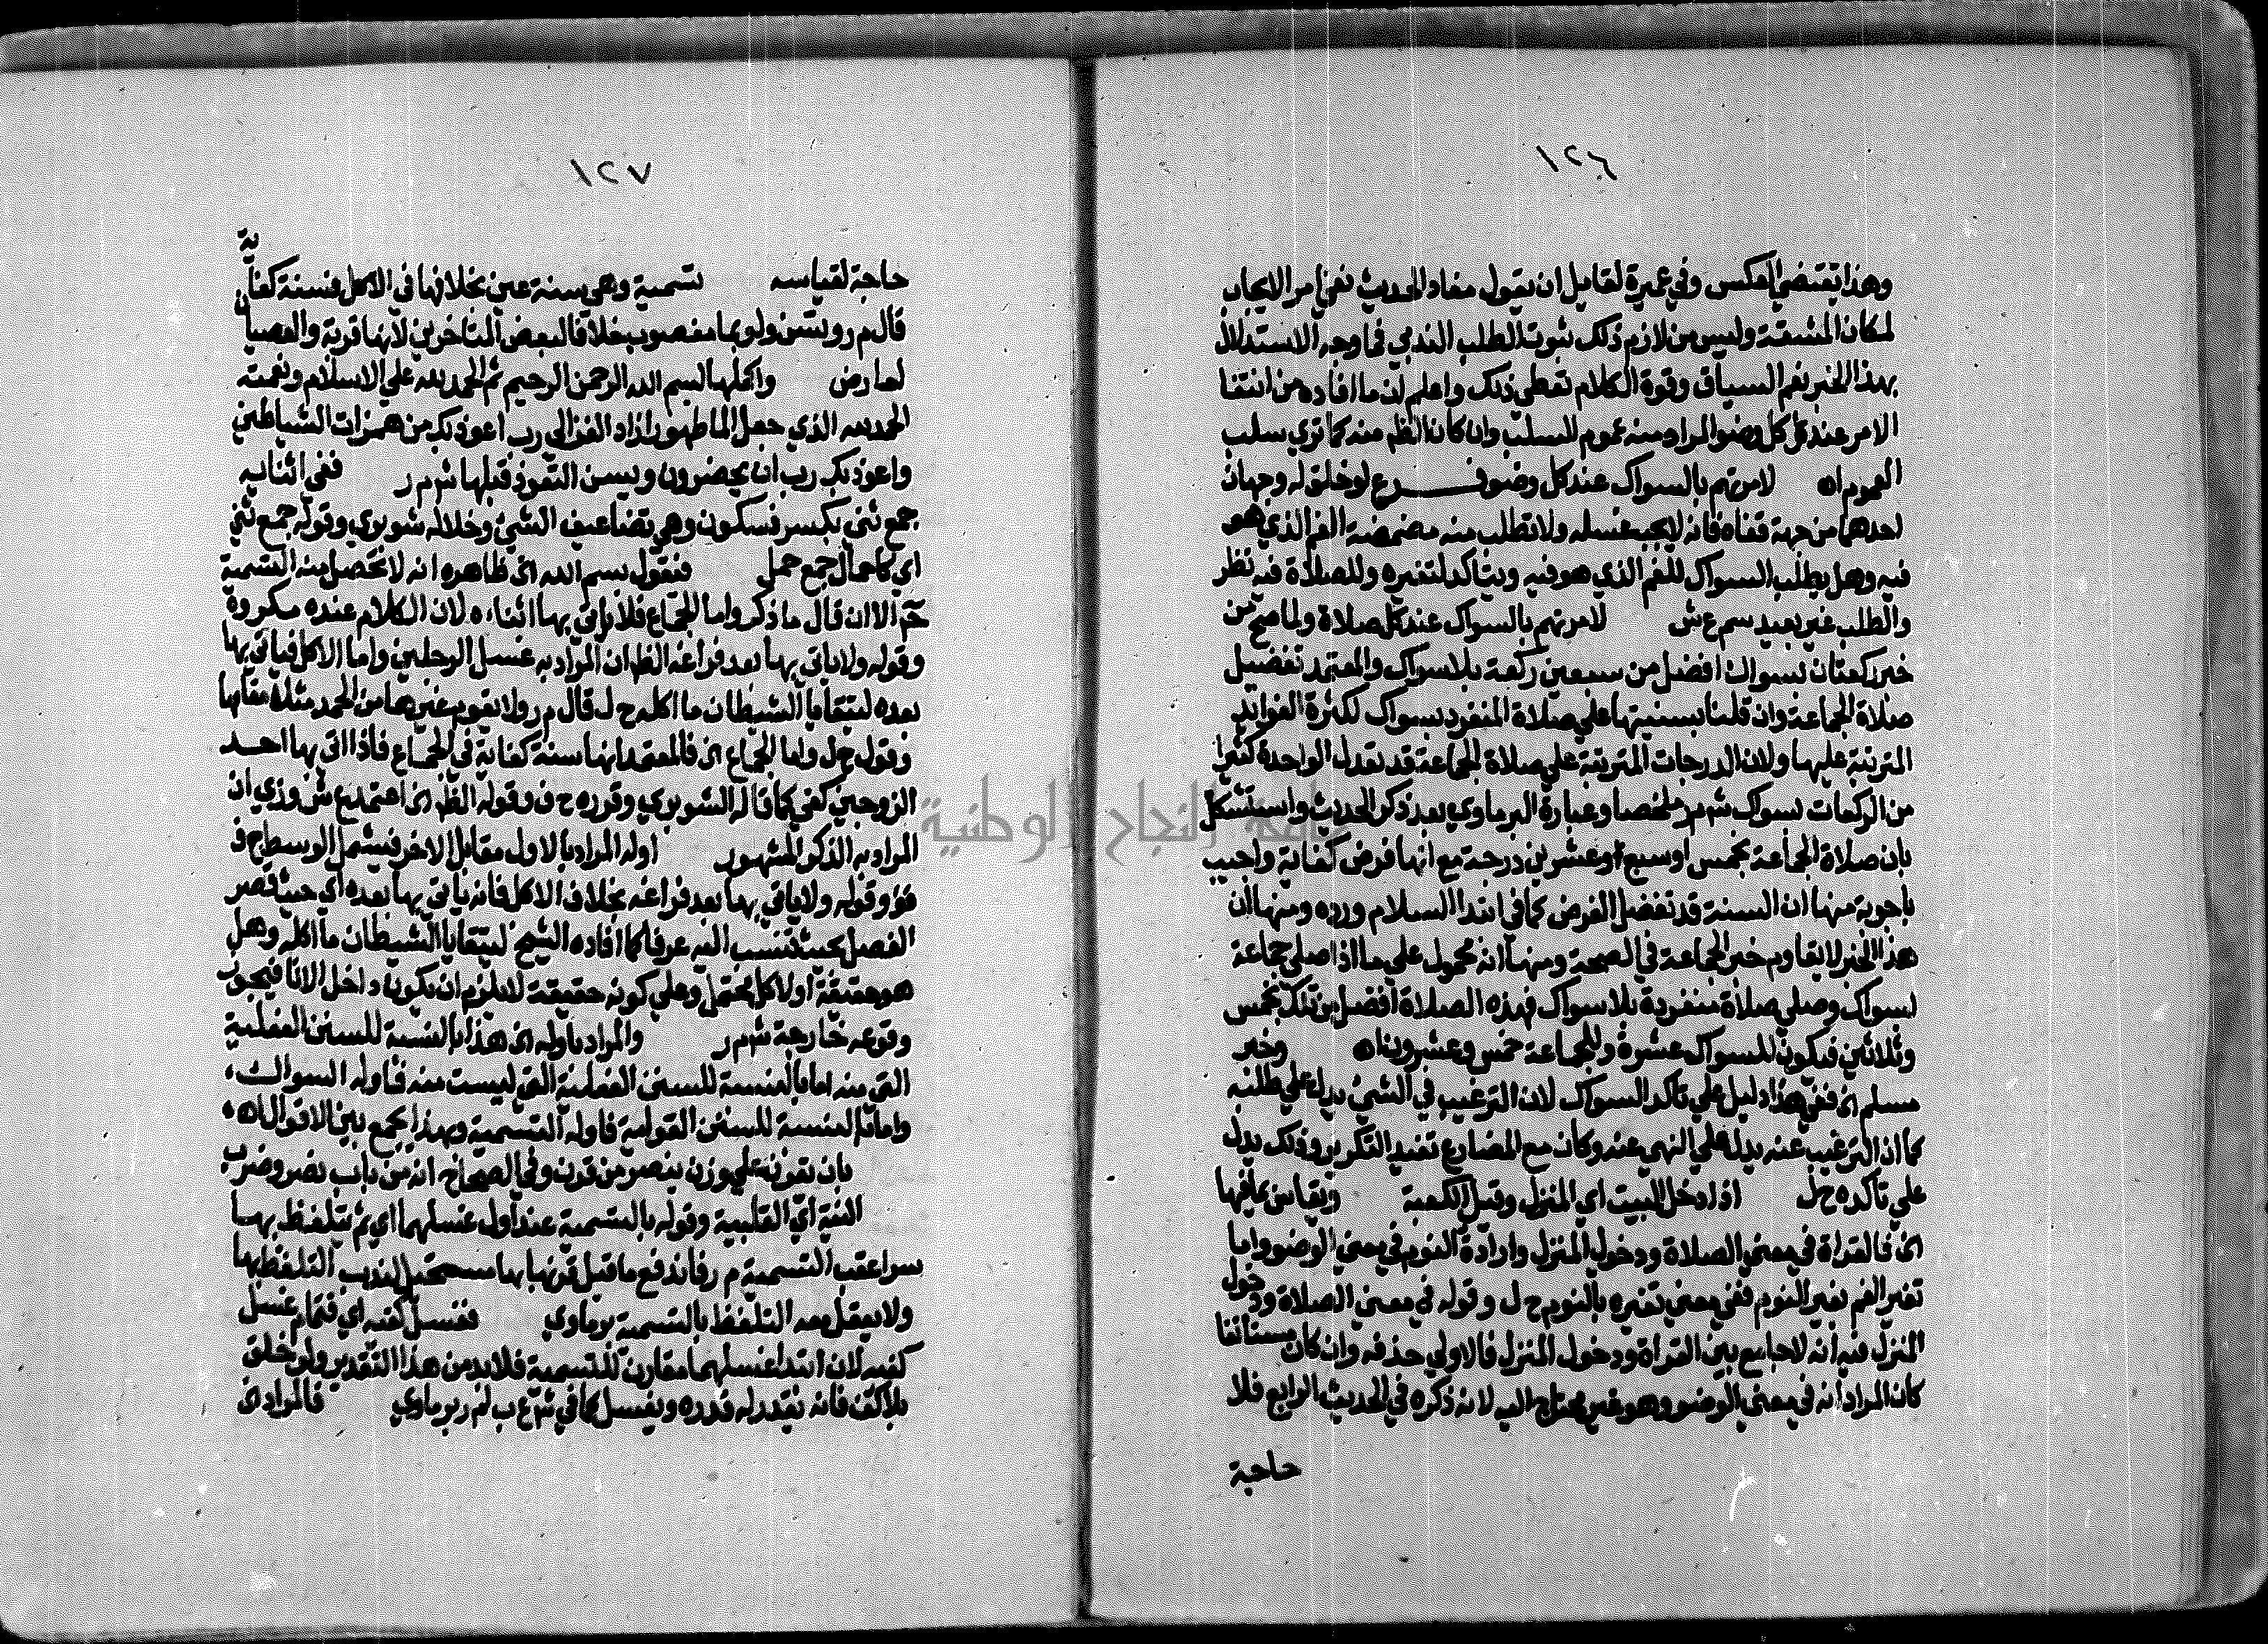 ١٢٦
وهذا يقتضي العكس وفي عميرة لقايل ان يقول مفاد الحديث نفي امر الايجاب
لمكان المشقة وليس من لازم ذلك ثبوت الطلب الندبي فما وجه الاستدلال
بهذا الخبر نعم السياق وقوة الكلام تعطي ذلك واعلم ان ما افاده من انتفا
الامر عند كل كل وضو المراد منه عموم السلب وان كان الظم منه كما تري سلب
العموم اه لامرتهم بالسواك عند كل وضو فرع لو خلق له وجهان
احدهما من جهة قفاه فانه لا يجب غسله ولا تطلب منه مضمضة الفم الذي هو
فيه وهل يطلب السواك للفم الذي هو فيه ويتاكد لتغيره وللصلاة فيه نظر
والطلب غير بعيد سم ع ش لامرتهم بالسواك عند كل صلاة ولما صح من
خبر ركعتان بسواك افضل من سبعين ركعة بلا سواك والمعتمد تفضيل
صلاة الجماعة وان قلنا بسنيتها علي صلاة المنفرد بسواك لكثرة الفوائد
المترتبة عليها ولان الدرجات المترتبة علي صلاة الجماعة قد تعدل الواحدة كثيرا
من الركعات بسواك ش م ر ملخصا وعبارة البرماوي بعد ذكر الحديث واستشكل
بان صلاة الجماعة بخمس او سبع او عشرين درجة مع انها فرض كفاية واجيب
باجوبة منها ان السنة قد تفضل الفرض كما في ابتدا السلام ورده ومنها ان
هذا الخبر لا يقاوم خبر الجماعة في الصحة ومنها انه محمول علي ما اذا صلي جماعة
بسواك وصلي صلاة منفردة بلا سواك فهذه الصلاة افضل من تلك بخمس
وثلاثين فيكون للسواك عشرة وللجماعة خمس وعشرون اه وخبر
مسلم الخ ففي هذا دليل علي تاكد السواك لان الترغيب في الشئ يدل علي طلبه
كما ان الترغيب عنه يدل علي النهي عنه وكان مع المضارع تفيد التكرير وذلك يدل
علي تاكده ح ل اذا دخل البيت اي المنزل وقيل الكعبة ويقاس بما فيها
الخ فالقراة في معني الصلاة ودخول المنزل وارادة النوم في معني الوضو واما
تغير الفم بغير النوم ففي معني تغيره بالنوم ح ل وقوله في معني الصلاة ودخول
المنزل فيه انه لا جامع بين القراة ودخول المنزل فالاولي حذفه وان كان مستانفا
كان المراد انه في معني الوضو وهو غير محتاج اليه لانه ذكره في الحديث الرابع فلا
حاجة
١٢٧
حاجة لقياسه تسمية وهي سنة عين بخلافها في الاكل فسنة كفاية
قال م ر ويسن ولو بما مغصوب خلافا لبعض المتاخرين لانها قربة والعصيان
لعارض واكملها بسم الله الرحمن الرحيم ثم الحمد لله علي الاسلام ونعمته
الحمد لله الذي جعل الما طهورا زاد الغزالي رب اعوذ بك من همزات الشياطين
واعوذ بك رب ان يحضرون ويسن التعوذ قبلها ش م ر ففي اثنايه
جمع ثني بكسر فسكون وهي تضاعيف الشئ وخلاله شوبري وقوله جمع ثني
اي كاحمال جمع حمل فيقول بسم الله الخ ظاهره انه لا تحصل منه التسمية
ثم الا ان قال ما ذكر واما الجماع فلا ياتي بها اثناءه لان الكلام عنده مكروه
وقوله ولا ياتي بها بعد فراغه الظ ان المراد به غسل الرجلين واما الاكل فياتي بها
بعده ليتقايا الشيطان ما اكله ح ل قال م ر ولا يقوم غيرها من الحمد مثلا مقامها
وقول ح ل واما الجماع الخ فالمعتمد انها سنة كفاية في الجماع فاذا اتي بها احد
الزوجين كفي كما قاله الشوبري وقرره ح ف وقوله الظ الخ اعتمد ع ش وزي ان
المراد به الذكر المشهور اوله المراد بالاول مقابل الاخر فيشمل الوسط ح ف
وقوله ولا ياتي بها بعد فراغه بخلاف الاكل فانه ياتي بها بعده اي حيث قصر
الفصل بحيث تنسب اليه عرفا كما افاده الشيخ ليتقايا الشيطان ما اكله وهل
هو حقيقة او لا كل محتمل وعلي كونه حقيقة لا يلزم ان يكون داخل الانا فيجوز
وقوعه خارجه ش م ر والمراد باوله الخ هذا بالنسبة للسنن الفعلية
التي منه اما بالنسبة للسنن الفعلية التي ليست منه فاوله السواك،
واما بالنسبة للسنن القولية فاوله التسمية وبهذا يجمع بين الاقوال اه،
بان يقرنه علي وزن ينصر من قرن وفي الصحاح انه من باب نصر وضرب
النية اي القلبية وقوله بالتسمية عند اول غسلهما اي ثم يتلفظ بها
سرا عقب التسمية م ر فاندفع ما قيل قرنها بها مستحيل لندب التلفظ بها
ولا يعقل معه التلفظ بالتسمية برماوي فغسل كفيه اي فتمام غسل
كفيه لان ابتدا غسلهما مقارن للتسمية فلا بد من هذا التقدير ولو خلق
بلا كف فانه يقدر له قدره ويغسل كما في ش ع ب لم ر برماوي فالمراد الخ
جامعة النجاح الوطنية